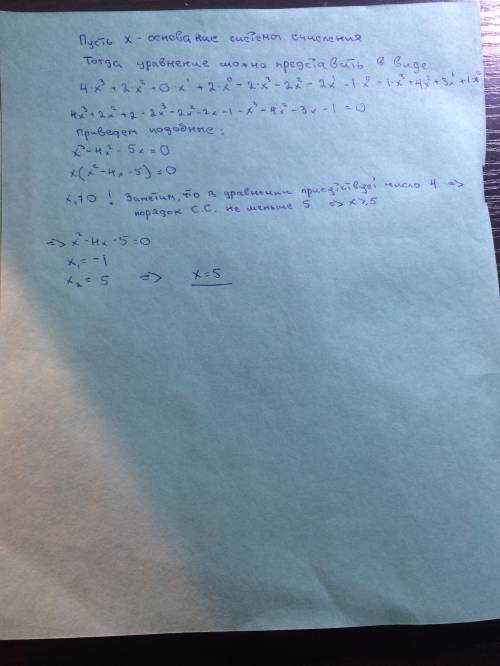 Пусть x - основание системы счисления
Тогда уравнение можно представить в виде:
4·x³ + 2·x² + 0·x¹ + 2·x⁰ - 2·x³ - 2x² - 2x¹ - 1·x⁰ - 1·x³ + 4x² + 3x¹ + 1x⁰
4x³ + 2x² + 2 - 2x³ - 2x² - 2x - 1 - x³ - 4x² - 3x - 1 = 0
Приведем подобные:
x³ - 4x² - 5x = 0
x(x² - 4x - 5) = 0
x₁≠0 ! Заметим, что в уравнении присутствует число 4 =>
порядок С.С. не меньше 5 => x≥5
=> x² - 4x - 5 = 0
x₁ = -1
x₂ = 5 => x = 5